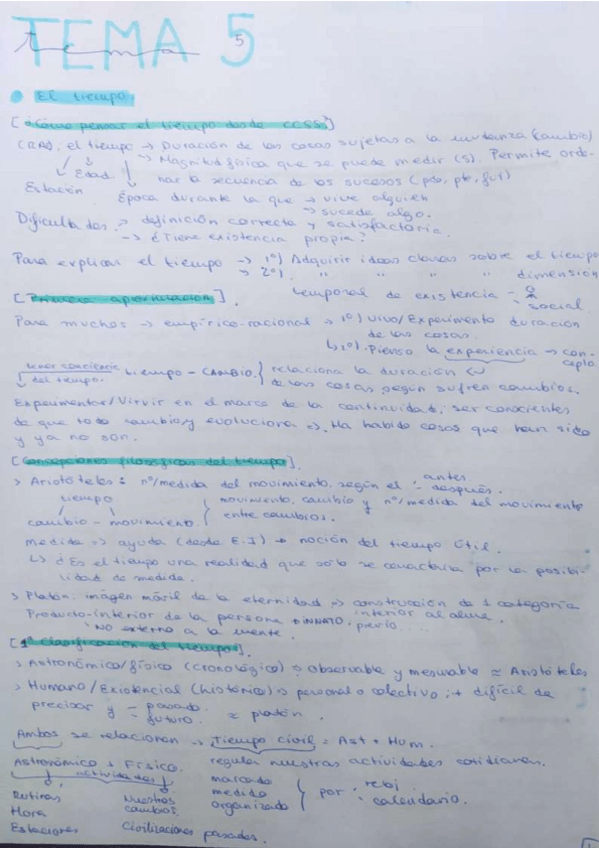 TEMA 5
tema 5
El tiempo.
[¿Cómo pensar el tiempo desde CCSS?]
(RAE): el tiempo → Duración de las cosas sujetas a la mudanza (cambio)
→ Magnitud física que se puede medir (s). Permite orde-
↓ Edad nar la secuencia de los sucesos (pdo, pte, fut)
Estación Época durante la que → vive alguien
→ sucede algo.
Dificultades: → definición correcta y satisfactoria.
→ ¿Tiene existencia propia?
Para explicar el tiempo → 1º) Adquirir ideas claras sobre el tiempo
→ 2º) " " " " dimensión
temporal de existencia - social
[Primera aproximación].
Para muchos → empírico-racional → 1º) Vivo/Experimento duración
de las cosas.
↳ 2º) Pienso la experiencia → con-
cepto
tener conciencia del tiempo. tiempo - CAMBIO. { relaciona la duración
de las cosas según sufren cambios.
Experimentar/Vivir en el marco de la continuidad, ser conscientes
de que todo cambia y evoluciona → Ha habido cosas que han sido
y ya no son.
[Concepciones filosóficas del tiempo].
> Aristóteles: nº/medida del movimiento, según el - antes
- después.
tiempo { movimiento, cambio y nº/medida del movimiento
cambio - movimiento. entre cambios.
medida → ayuda (desde E.I) → noción del tiempo útil.
↳ ¿Es el tiempo una realidad que sólo se caracteriza por la posibi-
lidad de medida.
> Platón: imágen móvil de la eternidad → construcción de 1 categoría
interior al alma.
Producto-interior de la persona + INNATO, previo....
NO externo a la mente.
[1ª Clasificación del tiempo].
> Astronómico/físico (cronológico) → observable y mesurable ≈ Aristóteles
> Humano/Existencial (histórico) → personal o colectivo; + difícil de
precisar y - pasado.
- futuro. ≈ platón.
Ambos se relacionan → Tiempo civil = Ast + Hum.
Astronómico + Físico. regula nuestras actividades cotidianas.
actividades marcado
Rutinas Nuestros medido } por - reloj
Hora cambios. organizado - calendario.
Estaciones Civilizaciones pasadas.